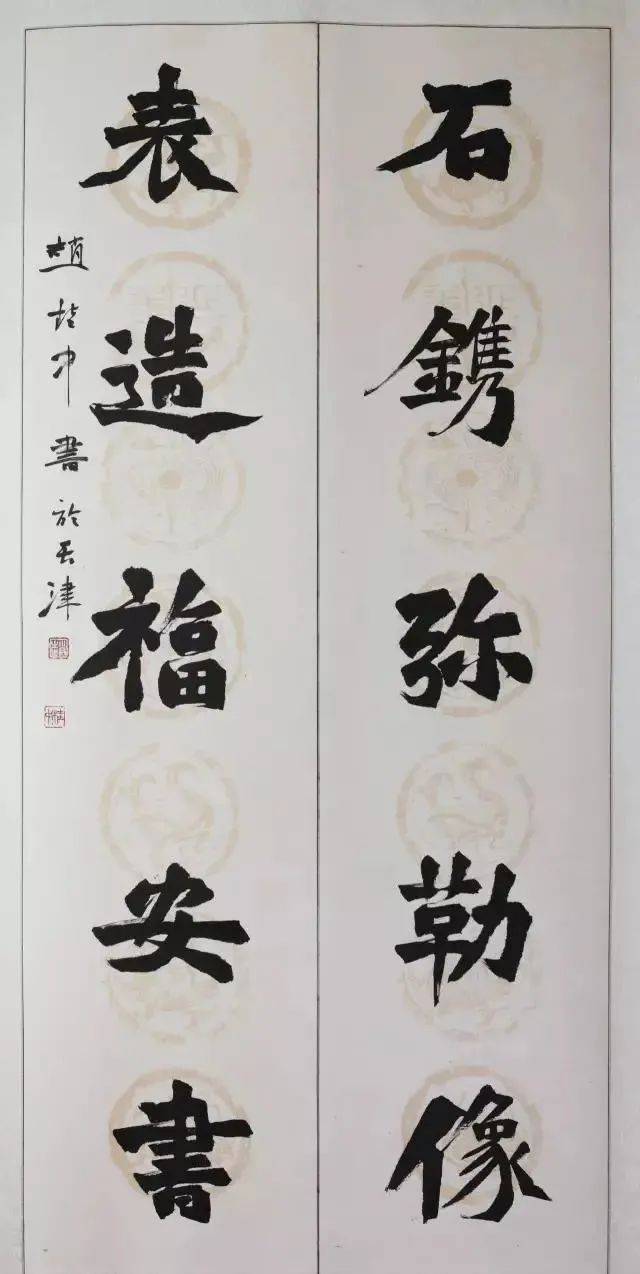 石鐫弥勒像
表造福安書
書於天津